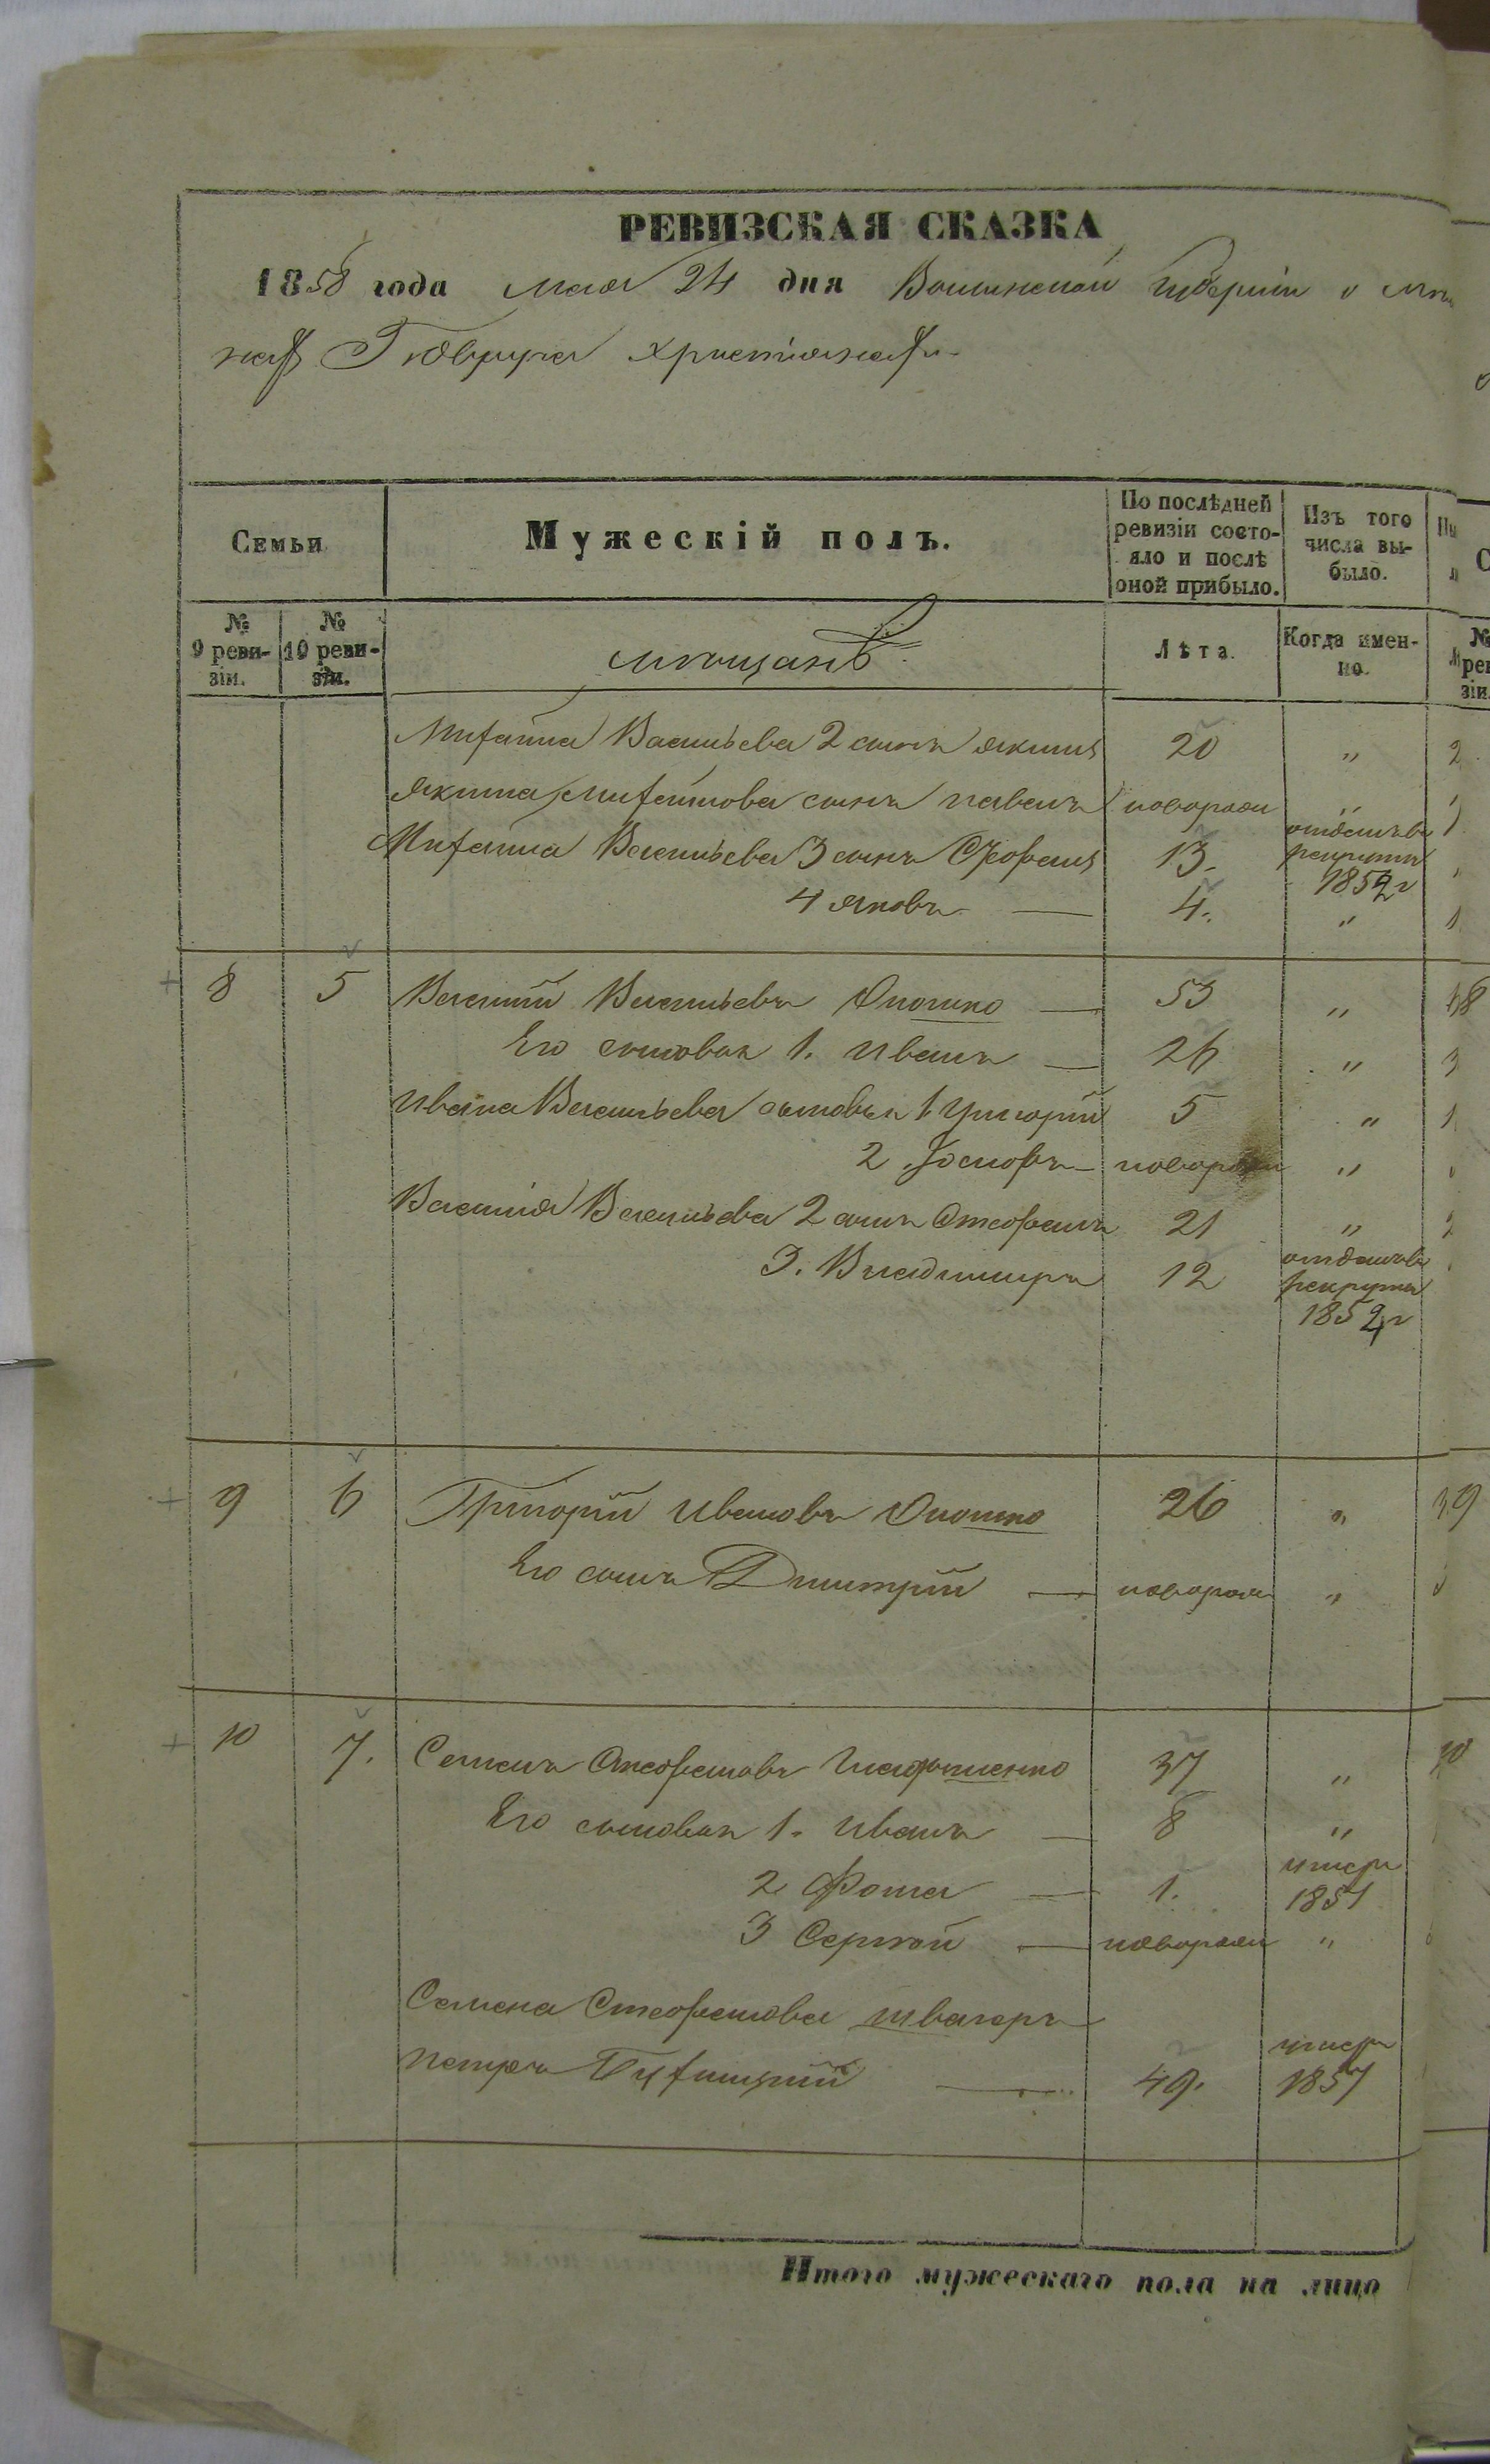 РЕВИЗСКАЯ СКАЗКА
1858 года мая 24 дня Волынской Губерніи о мѣща
нах христіанахъ
Семьи
Мужескій полъ.
По послѣдней ревизіи состо-
яло и послѣ
оной прибыло.
Изъ того
числа вы-
было.
№
9 реви-
зіи.
№
10 реви-
зіи.
мѣщанъ
Лѣта.
Когда имен-
но.
Михайла Васильева 2 сынъ Якимъ 20 „
Якима Михайлова сынъ Павелъ новорож „
Михайла Васильева 3 сынъ 13. отданъ въ
рекруты
1852 г
4 Яковъ — 4. „
8 5 Василій Васильевъ — 53 „
Его сыновья 1. Иванъ — 26 „
Ивана Васильева сыновья 1 Григорій 5 „
2 Іосифъ — новорож „
Василія Васильева 2 сынъ Стефанъ 21 „
3. Владимиръ 12 отданъ въ
рекруты
185 г
9 6 Григорій Ивановъ 26 „
Его сынъ Дмитрій — новорож „
10 7. Семенъ Стефановъ 37 „
Его сыновья 1. Иванъ — 8 „
2 Фома — 1. умеръ
1851
3 Сергѣй — новорож „
Семена Стефанова швагеръ
Петръ — 49. умеръ
1857
Итого мужескаго пола на лицо